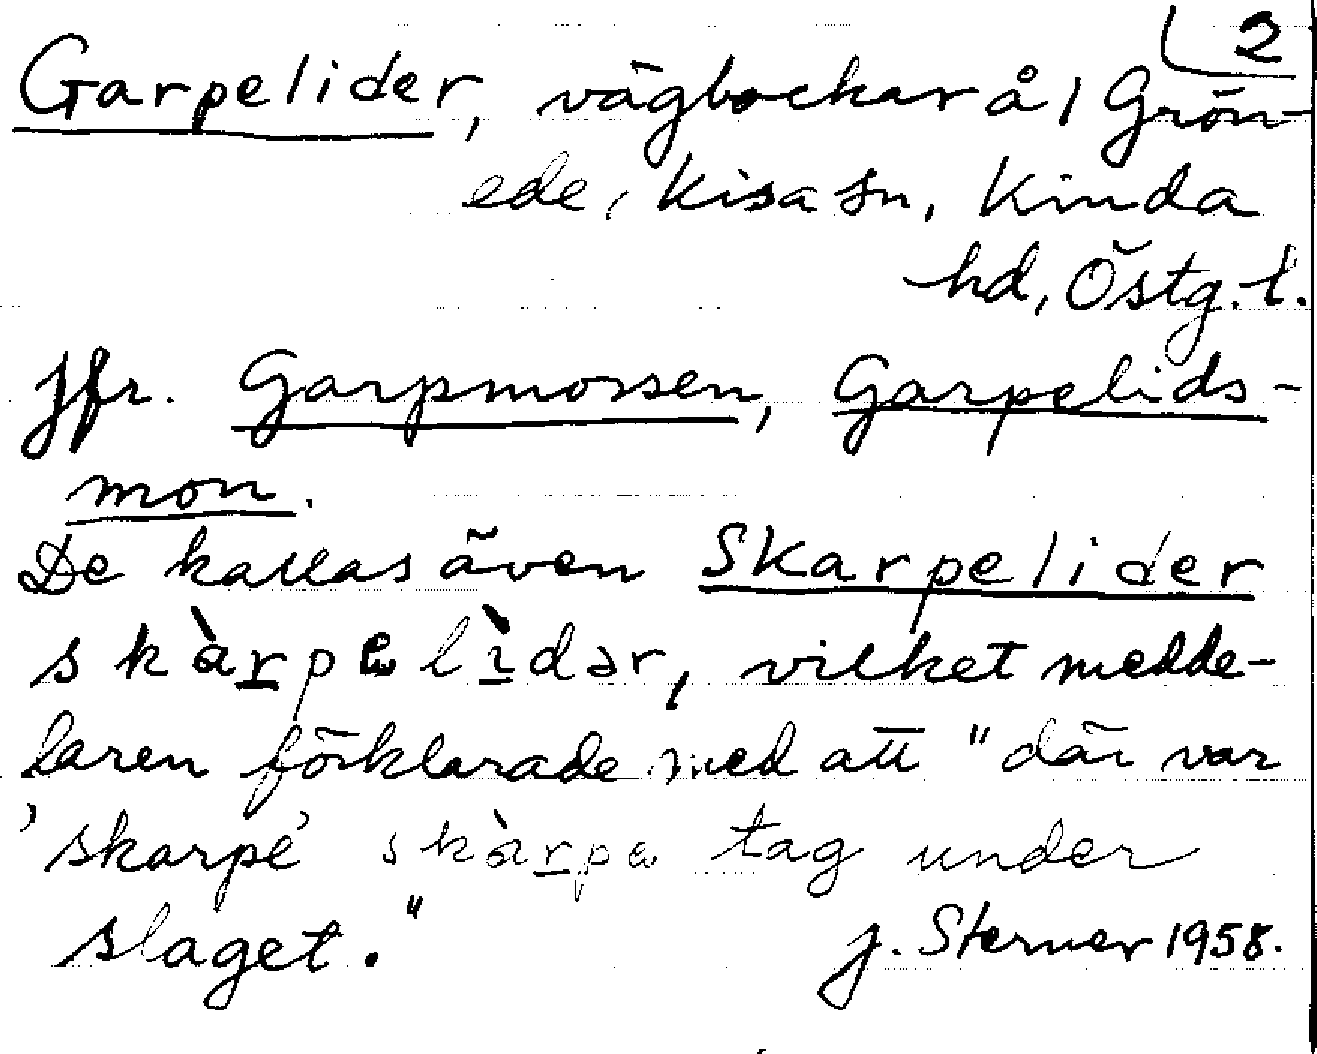 2
Garpelider, vägbackar å 1 Grön-
ede, Kisa sn, Kinda
hd, Östg. l.
Jfr. Garpmossen, Garpelids-
mon.
De kallas även Skarpelider
skàrpelìdər, vilket medde-
laren förklarade med att "där var
'skarpe' skàrpe tag under
slaget."
J. Sterner 1958.